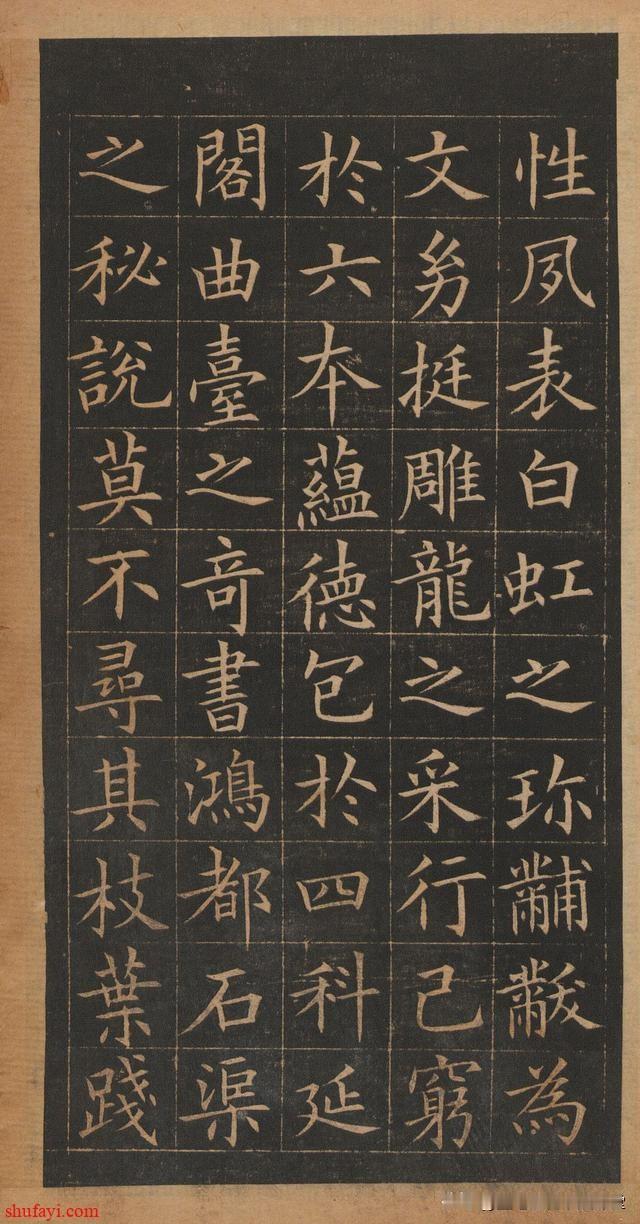 性夙表白虹之珎黼黻為
文㓜挺雕龍之采行己窮
於六本蘊德包於四科延
閣曲臺之竒書鴻都石渠
之秘說莫不尋其枝葉踐
shufayi.com